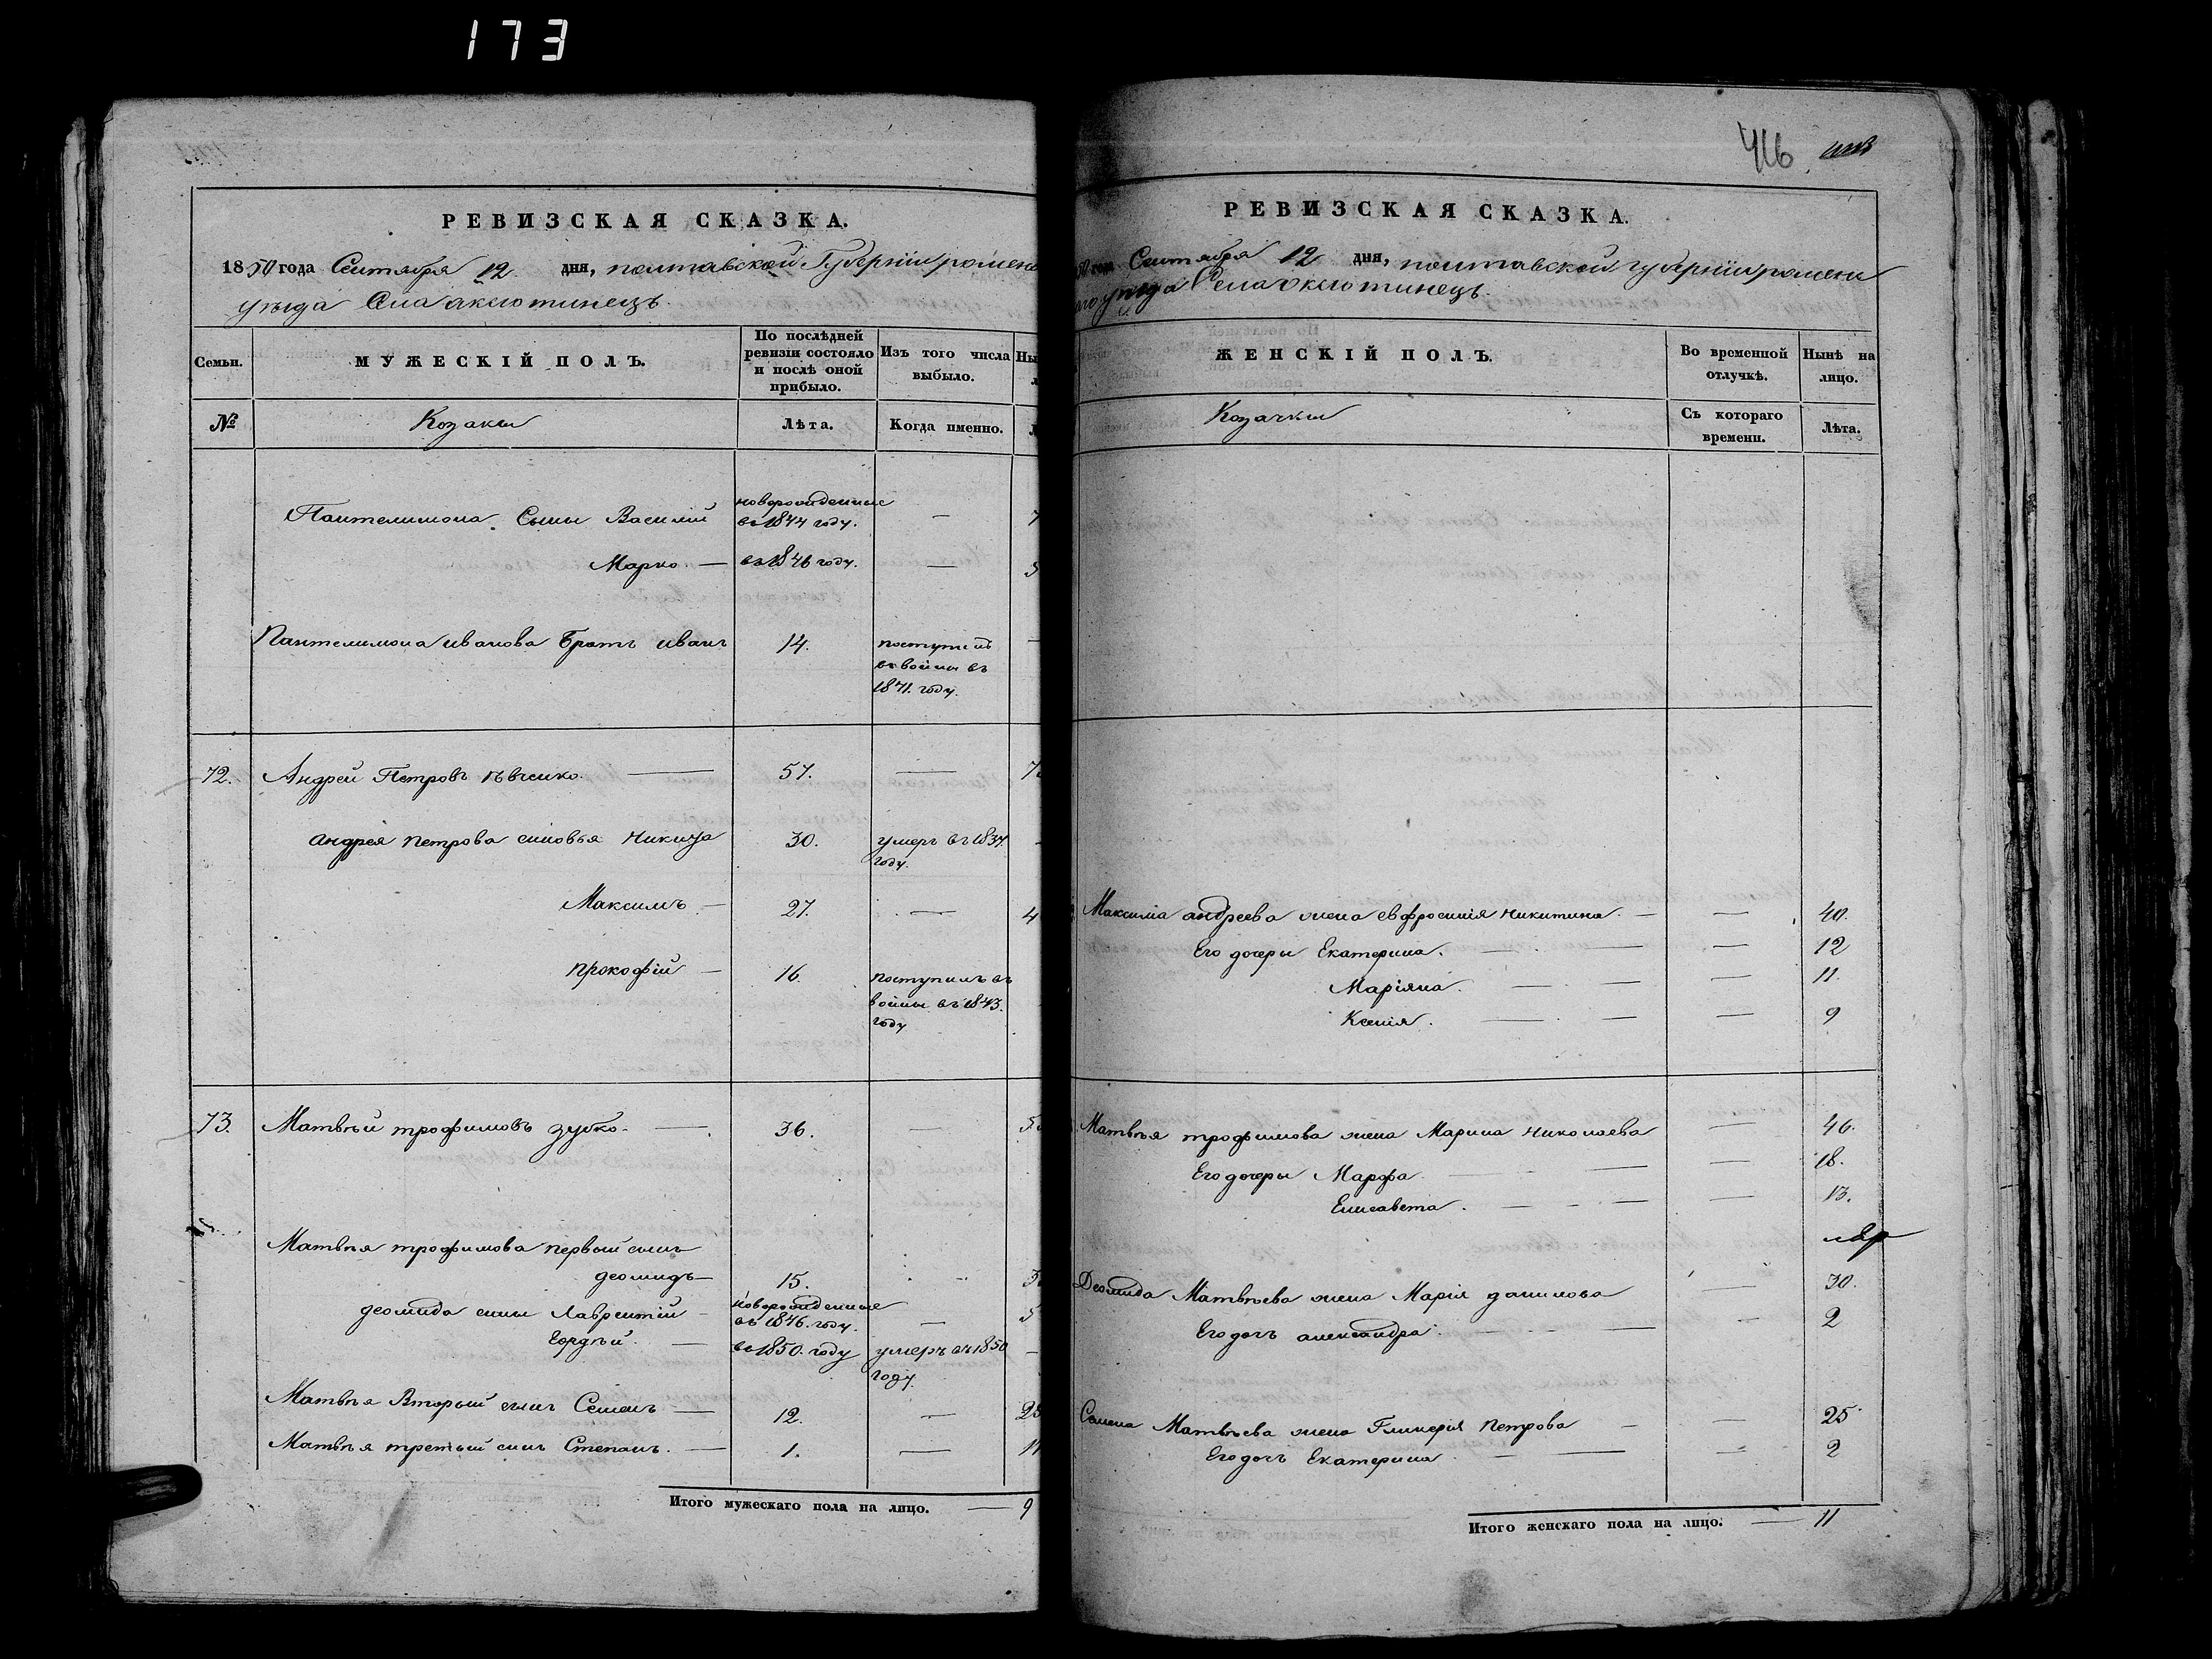 173
РЕВИЗСКАЯ СКАЗКА.
1850 года Сентября 12 дня, полтавской Губерніи ромен
уѣзда Села аксютинецъ.
Семьи.
МУЖЕСКІЙ ПОЛЪ.
По послѣдней ревизіи состояло и послѣ оной прибыло.
Изъ того числа выбыло.
№
Козаки
Лѣта.
Когда именно.
Пантелимона Сыны Василій новорожденные въ 1844 году. —
Марко — въ 1846 году. —
Пантелимона иванова братъ иванъ 14.
въ войны въ
1841. году.
72. Андрей Петровъ — 57. —
андрея петрова сыновья никита 30. умеръ въ 1837
году.
Максимъ — 27. — 4
прокофій — 16. поступилъ въ
войны въ 1843.
году
73. Матвѣй трофимовъ зубко. — 36. —
Матвѣя трофимова первый сынъ
деомидъ — 15.
деомида сыны Лаврентій — новорожденные
въ 1846. году. —
Гордѣй. — въ 1850. году умеръ въ 1850
году.
Матвѣя Вторый сынъ Семенъ — 12. —
Матвѣя третьый сынъ Степанъ. — 1. —
Итого мужескаго пола на лицо. — 9
416
РЕВИЗСКАЯ СКАЗКА.
года Сентября 12 дня, полтавской губерніи ромен
уѣзда Села аксютинецъ.
ЖЕНСКІЙ ПОЛЪ.
Во временной отлучкѣ.
Нынѣ на лицо.
Козачки
Съ котораго времени.
Лѣта.
Максима андреева жена евфросинія никитина. — — 40.
Его дочеры Екатерина. — — 12
Маріяна. — — 11.
Ксенія. — — — 9
Матвѣя трофимова жена Марина николаева — 46.
Его дочеры Марфа — — 18.
Елисавета. — — — 13.
Деомида Матвѣева жена Марія данилова — 30.
Его дочъ александра. — — — 2
Семена Матвѣева жена Гликерія петрова — — 25
Его дочъ Екатерина — — — 2
Итого женскаго пола на лицо. — 11